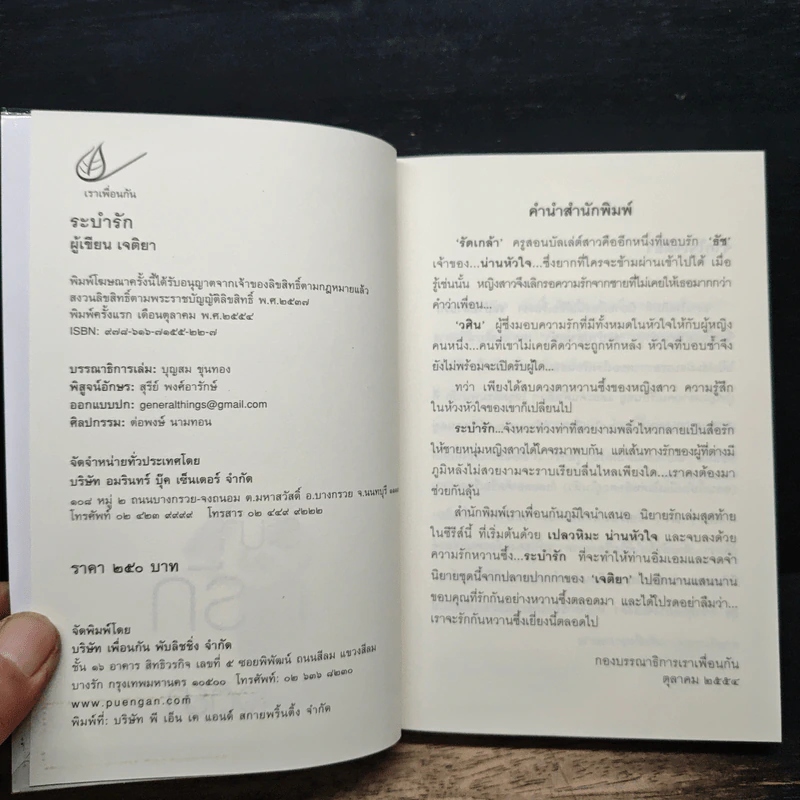 เราเพื่อนกัน
ระบำรัก
ผู้เขียน เจติยา
พิมพ์โฆษณาครั้งนี้ได้รับอนุญาตจากเจ้าของลิขสิทธิ์ตามกฎหมายแล้ว
สงวนลิขสิทธิ์ตามพระราชบัญญัติลิขสิทธิ์ พ.ศ.๒๕๓๗
พิมพ์ครั้งแรก เดือนตุลาคม พ.ศ.๒๕๕๔
ISBN: ๙๗๘-๖๑๖-๗๑๕๕-๒๒-๗
บรรณาธิการเล่ม: บุญสม ขุนทอง
พิสูจน์อักษร: สุรีย์ พงศ์อารักษ์
ออกแบบปก: generalthings@gmail.com
ศิลปกรรม: ต่อพงษ์ นามทอน
จัดจำหน่ายทั่วประเทศโดย
บริษัท อมรินทร์ บุ๊ค เซ็นเตอร์ จำกัด
๑๐๘ หมู่ ๒ ถนนบางกรวย-จงถนอม ต.มหาสวัสดิ์ อ.บางกรวย จ.นนทบุรี
โทรศัพท์ ๐๒ ๔๒๓ ๙๙๙๙ โทรสาร ๐๒ ๔๔๙ ๙๒๒๒
ราคา ๒๕๐ บาท
จัดพิมพ์โดย
บริษัท เพื่อนกัน พับลิชชิ่ง จำกัด
ชั้น ๑๖ อาคาร สิทธิวรกิจ เลขที่ ๕ ซอยพิพัฒน์ ถนนสีลม แขวงสีลม
บางรัก กรุงเทพมหานคร ๑๐๕๐๐ โทรศัพท์: ๐๒ ๖๓๖ ๘๒๓๐
www.puengan.com
พิมพ์ที่: บริษัท พี เอ็น เค แอนด์ สกายพริ้นติ้ง จำกัด
คำนำสำนักพิมพ์
'รัดเกล้า' ครูสอนบัลเล่ต์สาวคืออีกหนึ่งที่แอบรัก 'ธัช'
เจ้าของ...น่านหัวใจ...ซึ่งยากที่ใครจะข้ามผ่านเข้าไปได้ เมื่อ
รู้เช่นนั้น หญิงสาวจึงเลิกรอความรักจากชายที่ไม่เคยให้เธอมากกว่า
คำว่าเพื่อน...
'วศิน' ผู้ซึ่งมอบความรักที่มีทั้งหมดในหัวใจให้กับผู้หญิง
คนหนึ่ง...คนที่เขาไม่เคยคิดว่าจะถูกหักหลัง หัวใจที่บอบช้ำจึง
ยังไม่พร้อมจะเปิดรับผู้ใด...
ทว่า เพียงได้สบดวงตาหวานซึ้งของหญิงสาว ความรู้สึก
ในห้วงหัวใจของเขาก็เปลี่ยนไป
ระบำรัก...จังหวะท่วงท่าที่สวยงามพลิ้วไหวกลายเป็นสื่อรัก
ให้ชายหนุ่มหญิงสาวได้โคจรมาพบกัน แต่เส้นทางรักของผู้ที่ต่างมี
ภูมิหลังไม่สวยงามจะราบเรียบลื่นไหลเพียงใด...เราคงต้องมา
ช่วยกันลุ้น
สำนักพิมพ์เราเพื่อนกันภูมิใจนำเสนอ นิยายรักเล่มสุดท้าย
ในซีรีส์นี้ ที่เริ่มต้นด้วย เปลวหิมะ น่านหัวใจ และจบลงด้วย
ความรักหวานซึ้ง...ระบำรัก ที่จะทำให้ท่านอิ่มเอมและจดจำ
นิยายชุดนี้จากปลายปากกาของ 'เจติยา' ไปอีกนานแสนนาน
ขอบคุณที่รักกันอย่างหวานซึ้งตลอดมา และได้โปรดอย่าลืมว่า...
เราจะรักกันหวานซึ้งเยี่ยงนี้ตลอดไป
กองบรรณาธิการเราเพื่อนกัน
ตุลาคม ๒๕๕๔